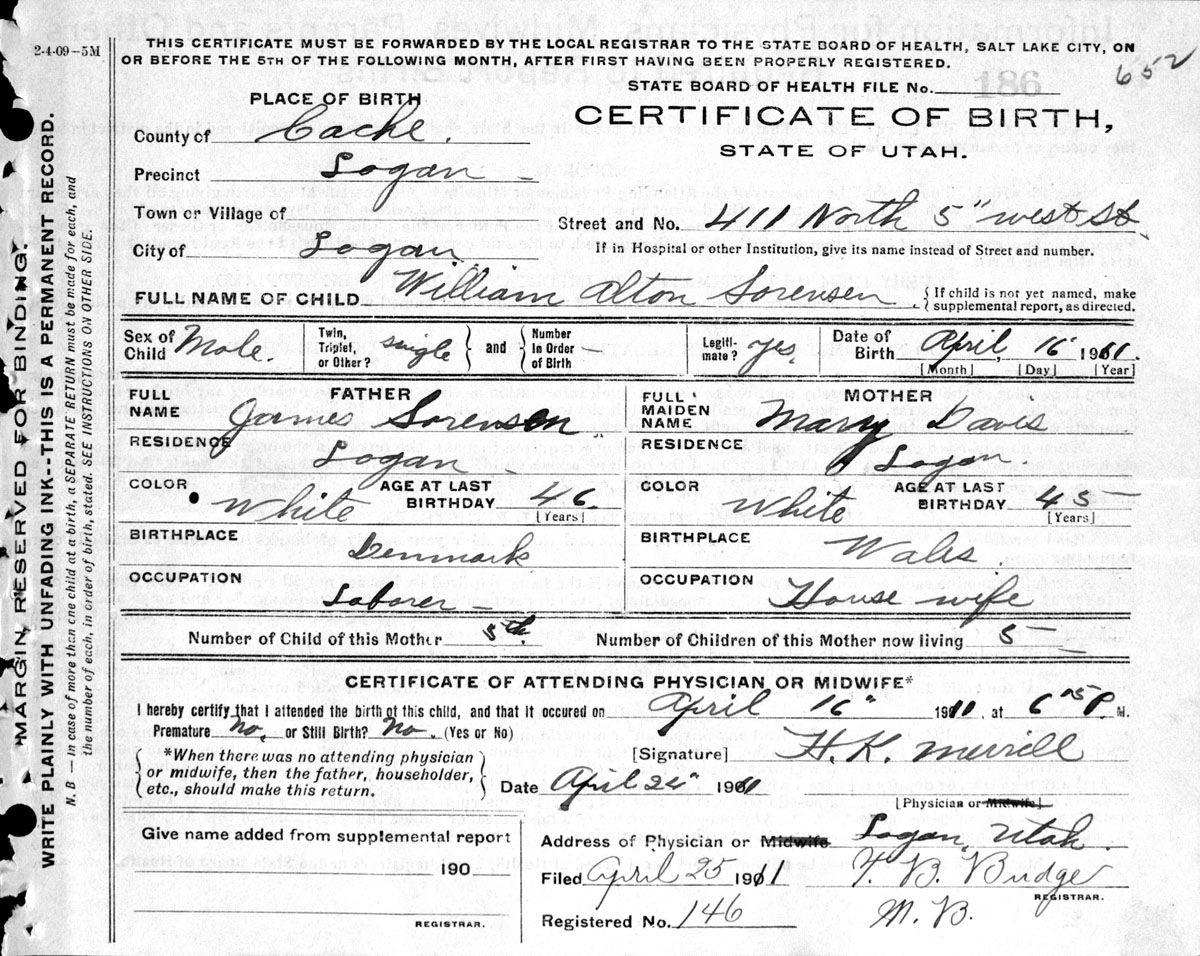 2-4-09-5M
THIS CERTIFICATE MUST BE FORWARDED BY THE LOCAL REGISTRAR TO THE STATE BOARD OF HEALTH, SALT LAKE CITY, ON
OR BEFORE THE 5TH OF THE FOLLOWING MONTH, AFTER FIRST HAVING BEEN PROPERLY REGISTERED.
652
STATE BOARD OF HEALTH FILE No. 186
PLACE OF BIRTH
CERTIFICATE OF BIRTH,
STATE OF UTAH.
County of Cache.
Precinct Logan
Town or Village of
Street and No. 411 North 5" west St.
City of Logan
If in Hospital or other Institution, give name instead of Street and number.
FULL NAME OF CHILD William Alton Sorensen {If child is not yet named, make
supplemental report, as directed.
Sex of Child Male. Twin, Triplet, or Other? single and Number in Order of Birth Legiti- mate? yes Date of Birth April, 16 1911.
[Month] [Day] [Year]
FATHER
FULL NAME James Sorensen
RESIDENCE Logan
COLOR White AGE AT LAST BIRTHDAY 46
[Years]
BIRTHPLACE Denmark
OCCUPATION Laborer
MOTHER
FULL MAIDEN NAME Mary Davis
RESIDENCE Logan.
COLOR White AGE AT LAST BIRTHDAY 45
[Years]
BIRTHPLACE Wales
OCCUPATION House wife
Number of Child of this Mother 5th Number of Children of this Mother now living 5
CERTIFICATE OF ATTENDING PHYSICIAN OR MIDWIFE*
I hereby certify that I attended the birth of this child, and that it occured on April 16" 1911, at 6 P. M.
Premature No, or Still Birth? No. (Yes or No)
*When there was no attending physician
or midwife, then the father, householder,
etc., should make this return.
[Signature] H. K. Merrill
Date April 24" 1911
[Physician or Midwife]
Give name added from supplemental report
190
REGISTRAR.
Address of Physician or Midwife Logan, Utah.
Filed April 25 1911 T. B. Budge
REGISTRAR.
Registered No. 146 M. D.
MARGIN RESERVED FOR BINDING.
WRITE PLAINLY WITH UNFADING INK--THIS IS A PERMANENT RECORD.
N. B — In case of more than one child at a birth, a SEPARATE RETURN must be made for each, and
the number of each, in order of birth, stated. SEE INSTRUCTIONS ON OTHER SIDE.